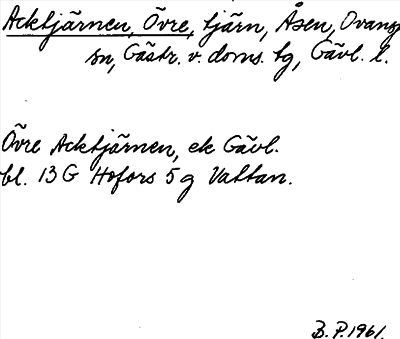 Acktjärnen, Övre, tjärn, Åsen, Ovansj.
sn, Gästr. v. doms. tg, Gävl. l.
Övre Acktjärnen, ek Gävl.
bl. 13 G Hofors 5 g Vattan.
B. P. 1961.